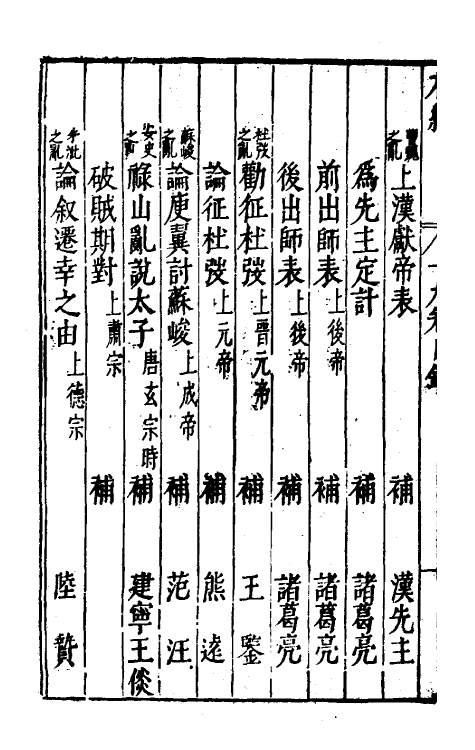 之亂 上漢獻帝表 補 漢先主
爲先主定計 補 諸葛亮
前出師表 上後帝 補 諸葛亮
後出師表 上後帝 補 諸葛亮
杜弢之亂 勸征杜弢 上晋元帝 補 王鑒
論征杜弢 上元帝 補 熊遠
蘇峻之亂 論庾翼討蘇峻 上成帝 補 范汪
安史之 祿山亂說太子 唐玄宗時 補 建寧王倓
破賊期對 上肅宗 補
之亂 論叙遷幸之由 上德宗 陸贄